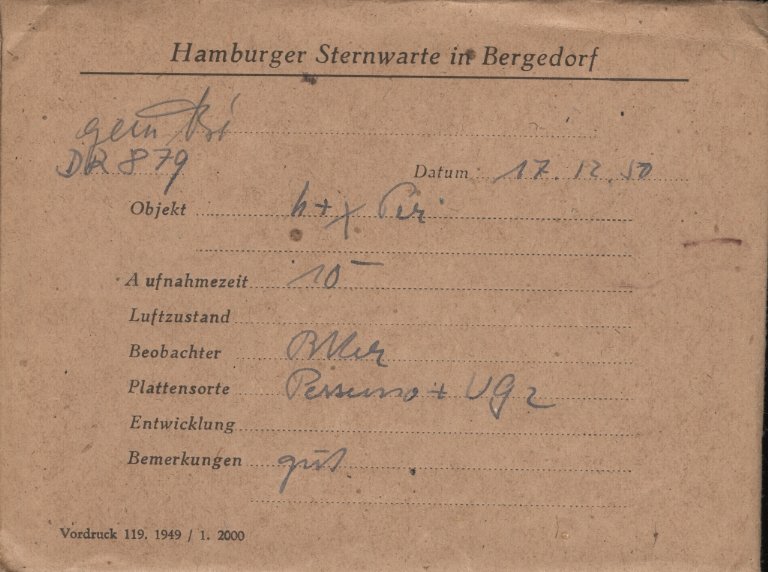 Hamburger Sternwarte in Bergedorf
DR 879
Datum: 17. 12. 50
Objekt h + χ Per
Aufnahmezeit 10
Luftzustand
Beobachter
Plattensorte + UG 2
Entwicklung
Bemerkungen gut.
Vordruck 119. 1949 / 1. 2000